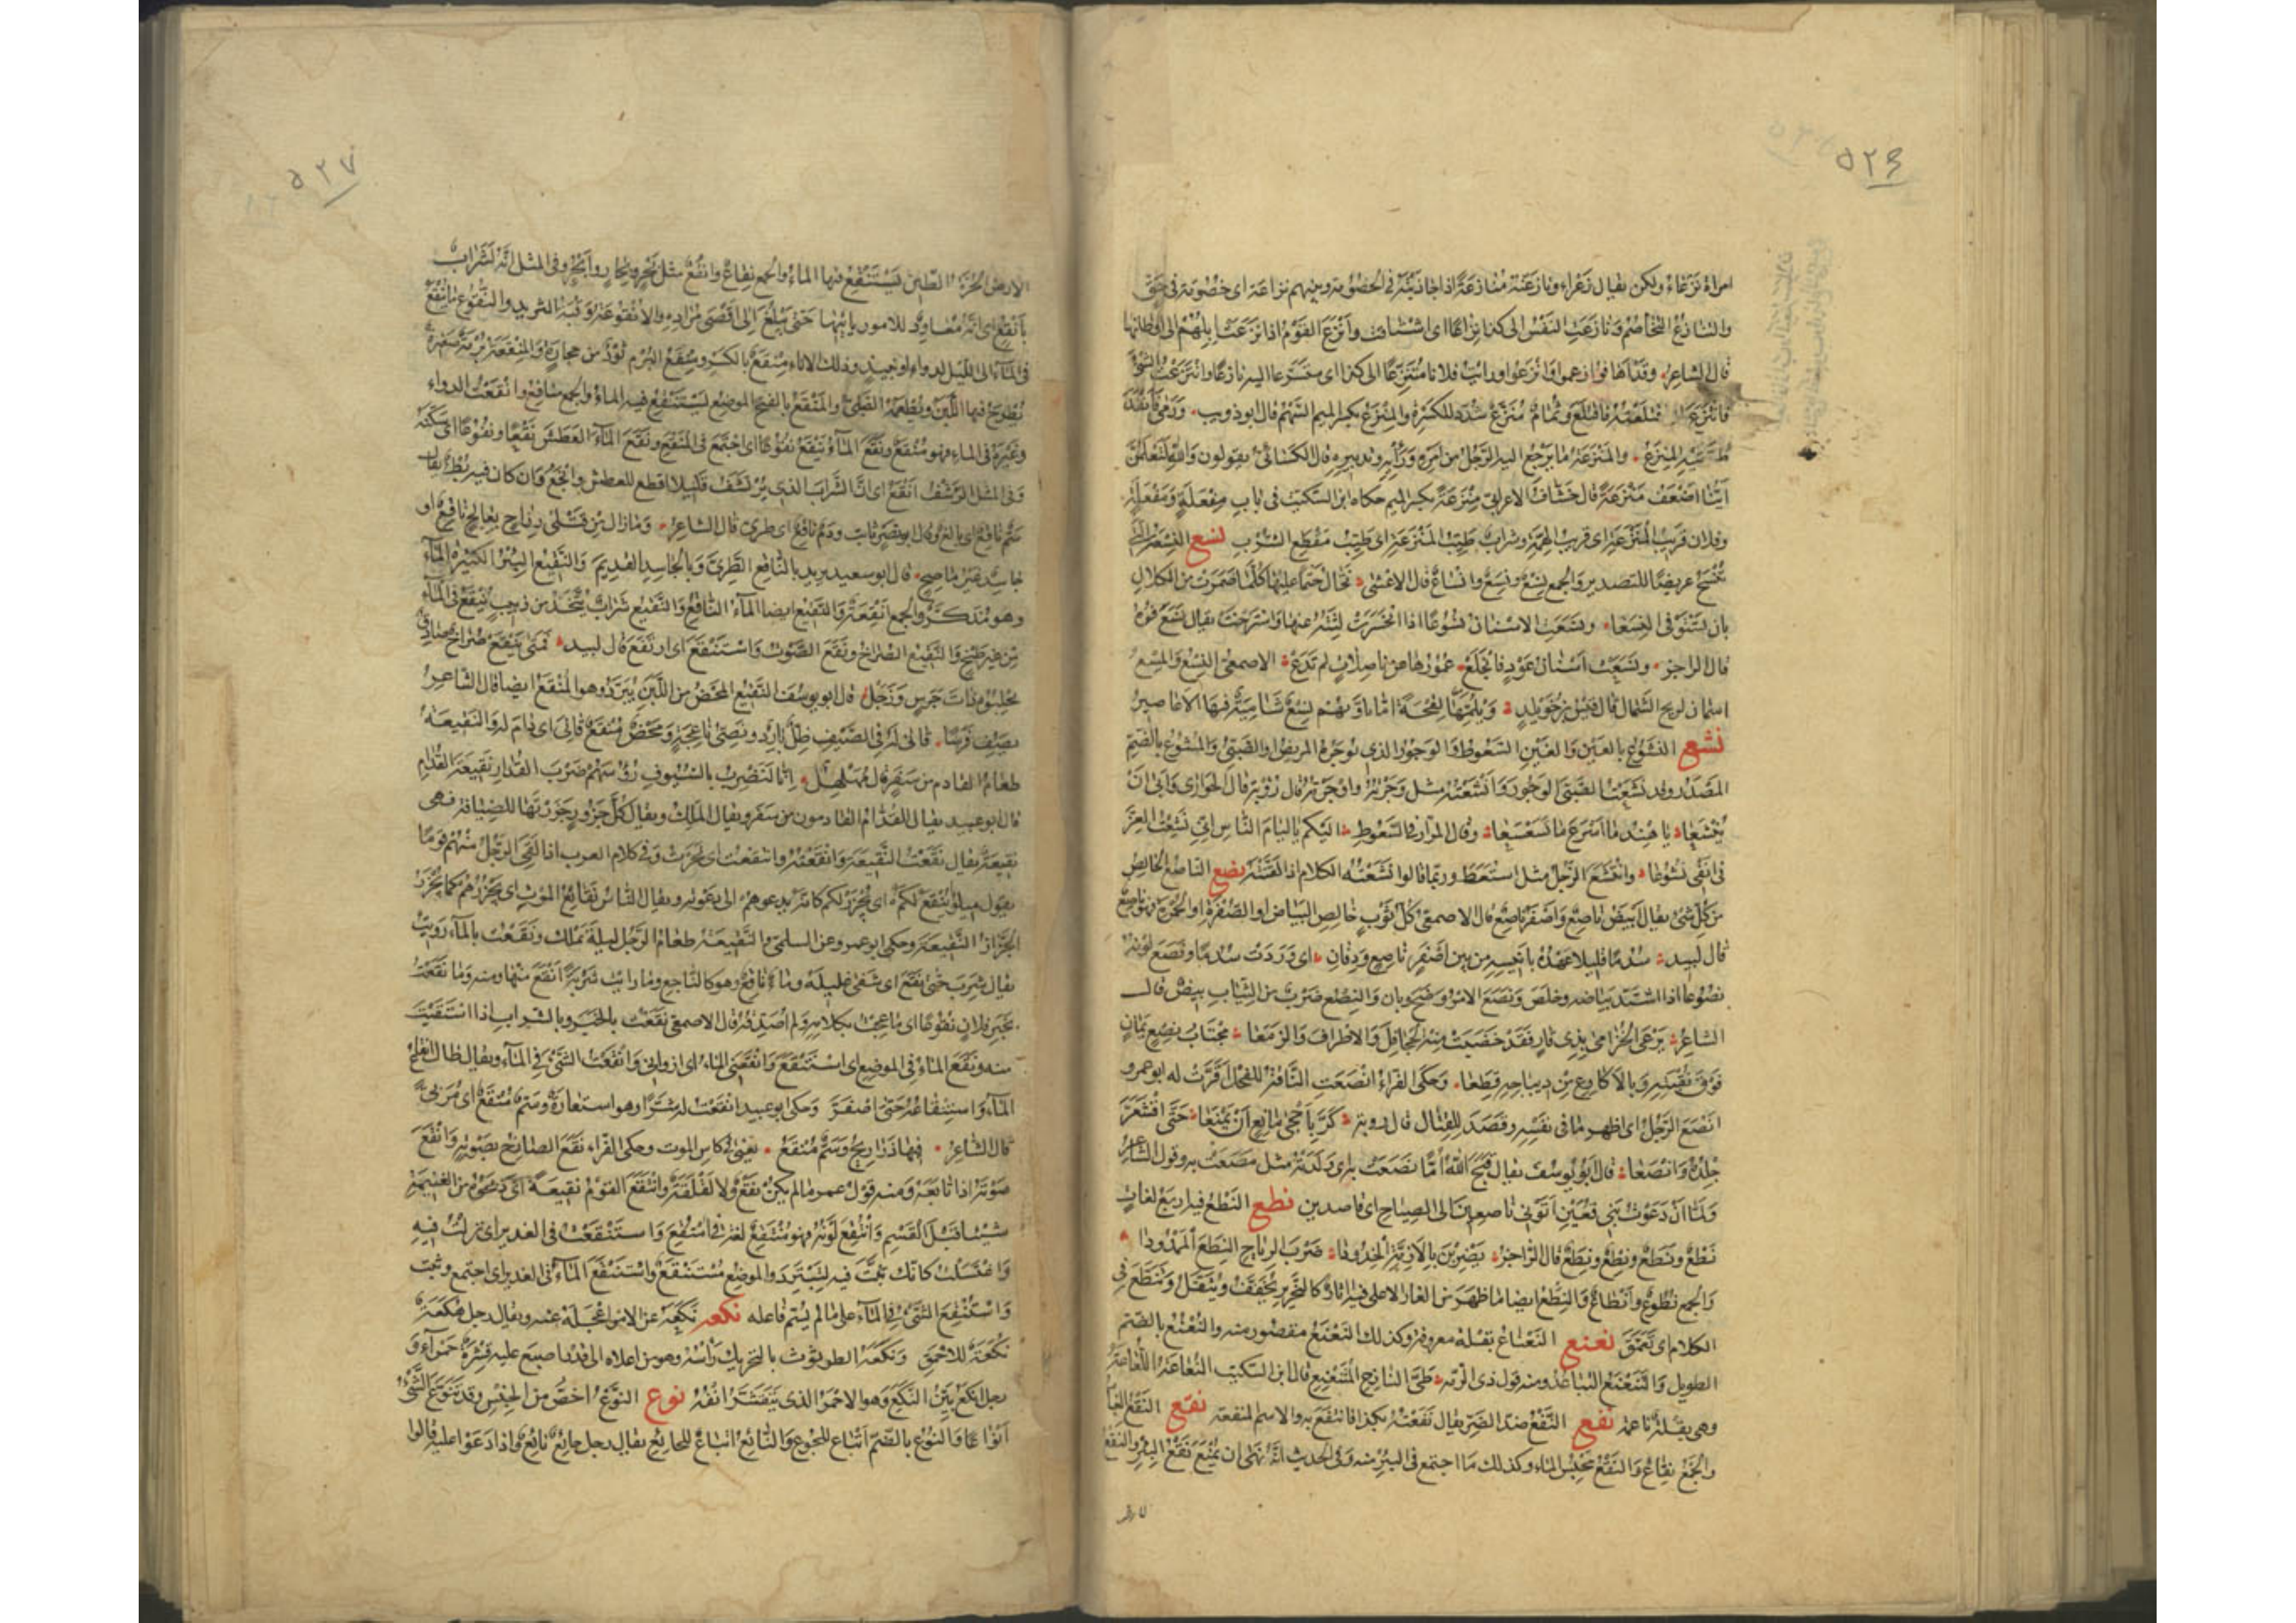 ٥٢٦
امراة نَزْعَاءُ ولكن يقال زَعْراء ونازَعْتُه مُنازَعَةً اذا جاذَبْتَه فى الخصُومة وبينهم نزاعة اى خصُومة فى حَقّ
والتنازعُ التخاصُم وَنازَعَت النفْسُ الى كذا نِزاعًا اى اشتاقت وأنْزَعَ القَوْمُ اذا نَزَعَتْ اِبِلُهُمْ الى اَوْطانها
قال الشاعر وقد اَهافُوا زعموا وَانْزَعُوا ورايت فلانا مُتَنَزِّعًا الى كذا اى متسَرّعا اليه نازعًا وانْتَزَعْتُ الشىَٔ
فانْتَزَعَ اى اقتلعته فاقتلع وثُمَامٌ مُنَزَّعٌ شُدّد للكثرة والمِنْزَعُ بكسر الميم السَّهْمُ قال ابو ذويب ورَمَى فَانْفَذَ
طُرَّتَيْهِ المِنْزَعُ والمَنْزَعَة مَا يَرْجِعُ اليه الرّجُل من اَمْرِه وَرَأْيِه وتدبيره قال الكسائى يقولون وَاللهِ لَتَعْلَمُنَّ
اَيُّنَا اَضْعَفُ مَنْزَعَةً قال خَشّافٌ الاعرابى مِنْزَعَةً بكسر الميم حكاه ابن السّكّيت فى باب مِفْعَلَةٍ وَمَفْعَلَةٍ
وفلان قريبُ المَنْزَعَةِ اى قريب الهمّة وشرابٌ طَيّبُ المَنْزَعَةِ اى طَيّبُ مَقْطَع الشُّرْبِ نسع النِّسْعَة التى
تُنْسَجُ عريضًا للتصدير والجمع نِسْعٌ ونِسَعٌ وانْسَاعٌ قال الاعشى تَخَالُ حَتْمًا عليها كلّما ضَمَرَتْ من الكَلالِ
بان تَسْتَوْفِىَ النِّسَعَا ونسَعَتِ الاسْنان نسُوعًا اذا انْحَسَرَتْ لِثَتُه عنها وَاسْتَرخَتْ يقال نَسَعَ فُوهُ
قال الراجز ونَسَعَتْ اَسْنانُ عَوْدٍ فانْجَلَعْ عُمُورُها عن ناصِلاتٍ لم تَدَعْ الاصمعى النِّسْعُ وَالمِسْعُ
اسْمان لريح الشّمال قال قيس بن خُوَيْلِدٍ وَيْلُمِّهَا لِقْحَةً اِمّا تؤوِّبُهُم نِسْعٌ شَامِيّةٌ فيهَا الاَعَاصيرُ
نشع النَّشُوعُ بالعَيْن وَالغَيْن السَّعُوطُ وَالوَجُورُ الذى يُوجَرُهُ المريضُ اوالصَّبىُّ وَالنُّشُوعُ بالضَّمّ
المَصْدَرُ وقد نَشَعْتُ الصَّبىَّ الوَجُورَ وَاَنْشَعْتُهُ مثل وَجَرْتُهُ وَاوْجَرْتُه قال رُؤْبَة قال الحَوَازى وَابَى اَنْ
يُنْشَعَا يا هِنْدُ مَا اَسْرَعَ مَا تَسَعْسَعَا وقال المرّار فى السَّعُوطِ اليكم يا لِئَامَ النّاسِ اِنّى نُشِعْتُ العِزَّ
فى اَنْفى نُشُوعَا وانْتَشَعَ الرّجُلُ مثل استَعَطَ وربّما قالوا نَشَعْتُه الكلامَ اذا لَقَّنْتَه نصع الناصع الخالص
من كلّ شئ يقال اَبْيَضُ ناصِعٌ وَاصْفَرُ ناصِعٌ قال الاصمعى كلّ ثَوْبٍ خالِصِ البَياضِ او الصُّفْرَةِ او الحُمْرَةِ فهو ناصِعٌ
قال لبيد سُدُمًا قليلا عَهْدُهُ باَنيسِهِ من بين اَصْفَرَ ناصِعٍ وَدِفَانِ اى وَرَدَتْ سُدُمًا ونَصَعَ لَوْنُه
نصُوعًا اذا اشتَدّ بياضه وخلَصَ وَنَصَعَ الامرُ وَضَحَ وبان وَالنِّصْعُ ضَرْبٌ من الثّيابِ بِيضٌ قال
الشاعر يَرْعَى الخُزَامى بِذِى قارٍ فَقَدْ خَضَبَتْ منه الجَحَافِلَ وَالاطْرافَ وَالزَّمَعَا مُجْتَابُ نِصْعٍ يَمَانٍ
فَوْقَ نُقْبَتِهِ وَبالاَكارِعِ مِن ديبَاجِهِ قِطَعَا وَحكَى الفرّاءُ انْصَعَتِ النّاقةُ للفَحْل قَرَّتْ له ابو عمرو
انْصَعَ الرّجُلُ اى اظهر مَا فى نفْسِهِ وقصَدَ لِلقِتال قال روبة كَرَّ بِاَحْجَى مَانِعٍ اَنْ يَمْنَعَا حَتّى اقْشَعَرَّ
جِلْدُهُ وَانْصَعَا قال ابو يُوسُفَ يقال قَبَحَ اللهُ اُمًّا نَصَعَتْ به اى وَلَدَتْهُ مثل مَصَعَتْ به وقول الشاعر
وَلمّا اَنْ دَعَوْتُ بَنى قُعَيْنٍ اَتَوْنى ناصِعِينَ الى الصِّيَاح اى قاصدين نطع النطع فيه اربَعُ لغاتٍ
نَطْعٌ ونَطَعٌ ونِطْعٌ ونِطَعٌ قال الرّاجز يَضْرِبْنَ بالاَزِمّةِ الخُدُودَا ضَرْبَ الرِّيَاحِ النِّطَعَ المَمْدُودَا
وَالجمع نُطُوعٌ وَاَنْطَاعٌ وَالنِّطَعُ ايضا مَا ظَهَرَ مِن الغار الاعلى فيه آثارٌ كالتحزِيز يُخَفَّفُ ويُثَقَّلُ وَتَنَطَّعَ فى
الكلام اى تَعَمَّقَ نعنع النَّعْنَاعُ بَقْلَة معروفة وكذلك النَّعْنَعُ مقصُور منه والنُّعْنُعُ بالضّم
الطويل وَالتَّنَعْنُعُ التباعُدُ ومنه قول ذى الرّمّة طَىَّ النّازِحِ المُتَنَعْنِعِ قال ابن السّكّيت النُّعَاعَةُ اللُّعَاعَةُ
وهى بقْلة ناعمة نفع النَّفْعُ ضدّ الضّرّ يقال نَفَعْتُه بكذا فانتفَعَ به والاسم المنفعة نقع النَّقْعُ الغُبَارُ
والجَمْعُ نِقَاعٌ وَالنَّقْعُ مَحْبِسُ المَاء وكذلك مَا اجتمع فى البئر منه وَفى الحديث انّهُ نهَى ان يُمْنَعَ نَقْعُ البِئْرِ والنَّقْعُ
٥٢٧
الارض الحُرَّةُ الطّين يَسْتَنْقِعُ فيها الماءُ والجمع نِقاعٌ وانْقُعٌ مثل بَحْرٍ وبِحَارٍ وابْحُرٍ وفى المثل انّه لَشَرَّابٌ
بأَنْقُعٍ اى انّهُ مُعاوِدٌ للامور ياتيها حَتّى يَبْلُغَ الى اَقْصَى مُرادِهِ والاُنْقُوعَة وَقْبَة الثّريد والنَّقُوعُ مَا يُنْقَعُ
فى المَآء الى اللّيل لدواءٍ او نَبيذٍ وذلك الاناء مِنْقَعٌ بالكسر ومِنْقَعُ البُرَمِ تَوْرٌ من حجارةٍ وَالمِنْقَعَة بُرْمَةٌ صَغيرة
يُطْرَحُ فيها اللَّبَنُ ويُطْعَمُهُ الصَّبىُّ والمَنْقَعُ بالفتح الموضِعُ يَسْتَنْقِعُ فيه الماءُ والجمع مَنَاقِعُ وانْقَعْتُ الدواءَ
وغيرَهُ فى المَاءِ فهو مُنْقَعٌ ونَقَعَ المَآءُ يَنْقَعُ نُقُوعًا اى اجْتمعَ فى المَنْقَعِ ونَقَعَ المَآءُ العَطَشَ نَقْعًا ونُقُوعًا اى سَكّنَه
وَفى المثل الرَّشْفُ اَنْقَعُ اى انّ الشَّرَابَ الذى يُرْتَشَفُ قليلا قليلا اقطع للعطش وانْجَعُ وَان كان فيه بُطْءٌ يقال
سَمٌّ ناقِعٌ اى بالغٌ وقال ابو نصْرٍ ثابت ودَمٌ ناقِعٌ اى طرىّ قال الشاعر وَمَا زالَ مِن قَتْلَى رِزاحٍ بعالِجٍ دَمٌ نَاقِعٌ او
جَاسِدٌ غَيْرُ مَاصِحِ قال ابو سعيد يريد بالنّاقعِ الطَّرِىَّ وَبالجَاسدِ القَديمَ وَالنَّقيعُ البِئْرُ الكثيرةُ المَآءِ
وهو مُذَكّرٌ والجمع اَنْقِعَةٌ وَالنَّقيعُ ايضا المآءُ النّاقعُ وَالنَّقيعُ شَرَابٌ يُتَّخَذُ من زَبيبٍ يُنْقَعُ فى المَآءِ
مِن غيرِ طَبْخٍ وَالنَّقيعُ الصُّراخُ ونَقَعَ الصَّوْتُ وَاسْتَنْقَعَ اى ارتفَعَ قال لبيد فَمَتَى يَنْقَعْ صُرَاخٌ صَادِقٌ
يُحْلِبُوهُ ذَاتَ جَرْسٍ وَزَجَلْ قال ابو يوسُفَ النَّقيعُ المَحْضُ من اللّبَنِ يُبَرَّدُ وهو المُنْقَعُ ايضا قال الشّاعرُ
يَصِفُ فَرَسًا قَانَى له فى الصّيْفِ ظِلٌّ بَارِدٌ ونَصِىُّ نَاعِجَةٍ وَمَحْضٌ مُنْقَعُ قانَى اى دَامَ له وَالنَّقيعَةُ
طعَامُ القادم من سَفَرٍ قال مُهَلْهِلٌ اِنّا لنَضْرِبُ بالسُّيُوفِ رُؤسَهُم ضَرْبَ القُدَارِ نَقيعَةَ القُدّامِ
قال ابو عبيد يقال القُدّامُ القادمون من سَفَرٍ ويقال المَلِكُ ويقال كلّ جَزُورٍ جَزَرْتَهَا للضّيافة فهى
نقيعَةٌ يقال نَقَعْتُ النَّقيعَةَ وانْقَعْتُ وانتقَعْتُ اى نَحَرْتُ وَفى كلام العرب اذا لقىَ الرّجلُ منهُم قَومًا
يقول ميلوا يُنْقَعْ لكمْ اى يُجْزَرْ لكم كانّه يدعوهم الى دَعْوَته ويقال النّاسُ نقَائِعُ المَوْتِ اى يَجْزُرُهُم كما يَجْزُرُ
الجَزّارُ النَّقيعَةَ وحكى ابو عمرو عن السلمىّ النَّقيعَةُ طعَامُ الرّجُل ليلةَ يَمْلِكُ ونَقَعْتُ بالمآءِ رَوِيتُ
يقال شَرِبَ حَتّى نَقَعَ اى شَفَى غليلَه وماءٌ ناقِعٌ وهو كالنّاجع ومَا رايتُ شَرْبَةً اَنْقَعَ منها ومنه وَمَا نَقَعْتُ
بخَبَرِ فلانٍ نُقُوعًا اى ما عِجْتُ بكلامه ولم اُصَدِّقْهُ قال الاصمعى نَقَعْتُ بالخبَر وبالشراب اذا اشتَفَيْتَ
منه ونقَعَ المَاءُ فى الموضِع اى اسْتَنْقَعَ وَانْقَعَنى المَاءُ اى اروَانى وَانْقَعْتُ الشّئَ فى المَآءِ ويقال طال اِنْقَاعُ
المَآءِ وَاستِنْقاعُهُ حَتّى اصْفَرَّ وَحكى ابو عبيد انقَعْتُ له شرًّا وهو استعارةٌ وسَمٌّ مُنْقَعٌ اى مُرَبًّى
قال الشّاعر فيها ذَرَارِيحُ وَسَمٌّ مُنْقَعُ يعنى فى كاسِ الموت وحكى الفرّاء نقَعَ الصارخُ بصَوْتِه وَانْقَعَ
صَوْتَهُ اذا تابَعَه وَمنه قولُ عمر مالم يكنْ نَقْعٌ ولا لَقْلَقَةٌ وانْتَقَعَ القومُ نقيعَةً اى ذبَحُوا من الغنيمَةِ
شيئًا قبْلَ القَسْمِ وَانْتُقِعَ لَوْنُهُ فهو مُنْتَقَعٌ لغة فى امْتُقِعَ وَاستَنْقَعْتُ فى الغدير اى نزلتُ فيهِ
وَاغتَسَلتُ كانّك ثَبَتَّ فيه لتَبْتَرِدَ والموضع مُسْتَنْقَعٌ واسْتَنْقَعَ المَآءُ فى الغدير اى اجتمع وثبتَ
وَاسْتُنْقِعَ الشّئُ فى المَآءِ على مالم يُسَمّ فاعله نكع نَكَعَه عن الامر اَعْجَلَهُ عنه ويقال رجل هُكَعَةٌ
نُكَعَةٌ للاحمَق وَنَكَعَة الطّرثُوث بالتحريك رَأْسُه وهو من اعلاه الى قدْر اصبع عليه قشْرةٌ حَمْرآءُ و
رجل انْكَعُ بَيّنُ النَّكَعِ وَهو الاحْمَرُ الذى يَتَقَشَّرُ انْفُهُ نوع النَّوْعُ اخَصُّ من الجِنْسِ وقد تَنَوَّعَ الشّئُ
اَنْوَاعًا وَالنُّوعُ بالضّمّ اتْبَاعٌ للجُوعِ وَالنّائِعُ اتباعٌ للجَائِع يقال رجل جَائِعٌ نائِعٌ واذا دَعَوْا عليهِ قالوا